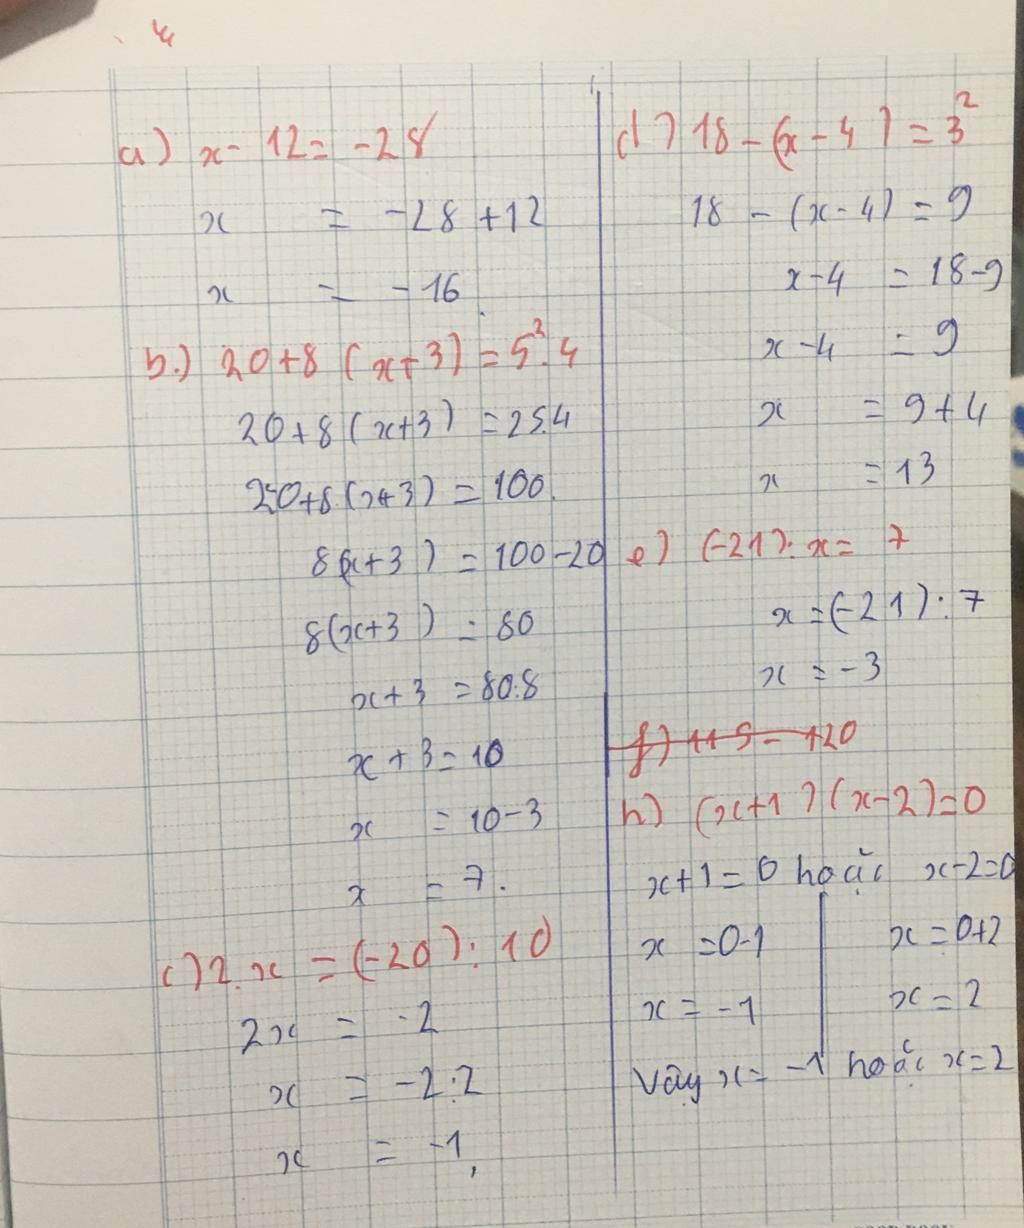 a) x - 12 = -28
x = -28 + 12
x = -16
b.) 20 + 8 (x + 3) = 5². 4
20 + 8 (x+3) = 25.4
20 + 8 (x+3) = 100
8(x+3) = 100-20
8(x+3) = 80
x+3 = 80:8
x + 3 = 10
x = 10-3
x = 7.
c) 2. x = (-20) : 10
2x = -2
x = -2:2
x = -1
d) 18 - (x - 4) = 3²
18 - (x-4) = 9
x-4 = 18-9
x-4 = 9
x = 9+4
x = 13
e) (-21): x = 7
x = (-21) : 7
x = -3
h) (x+1) (x-2)=0
x+1=0 hoặc x-2=0
x =0-1 x = 0+2
x = -1 x = 2
Vậy x = -1 hoặc x=2